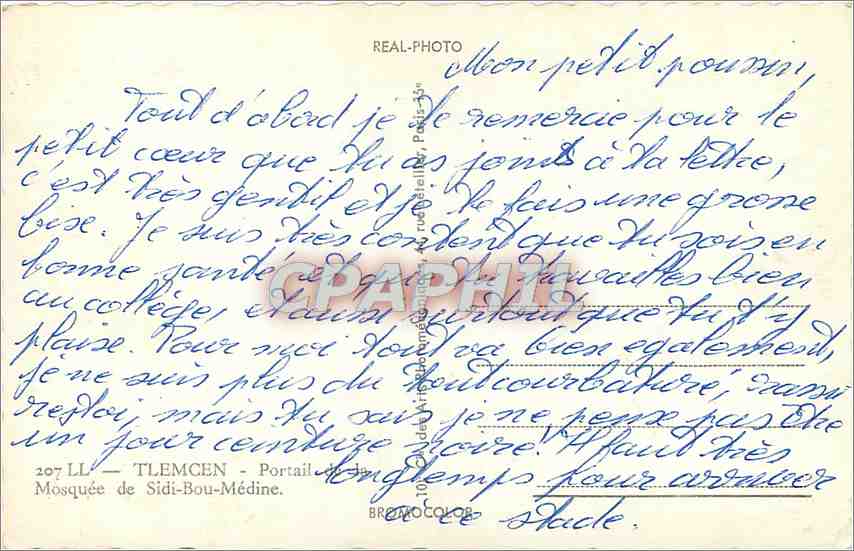 REAL-PHOTO
Mon petit poussin,
Tout d'abord je te remercie pour le
petit cœur que tu as joint à ta lettre,
c'est très gentil et je te fais une grosse
bise. Je suis très content que tu sois en
bonne santé et que tu travailles bien
au collège, et aussi surtout que tu t'y
plaise. Pour moi tout va bien également,
je ne suis plus du tout courbaturé, rassure
toi, mais tu sais je ne pense pas être
un jour ceinture noire! Il faut très
longtemps pour arriver
à ce stade.
207 LL — TLEMCEN - Portail de la
Mosquée de Sidi-Bou-Médine.
BROMOCOLOR
Paris-XVe
CPAPHIL